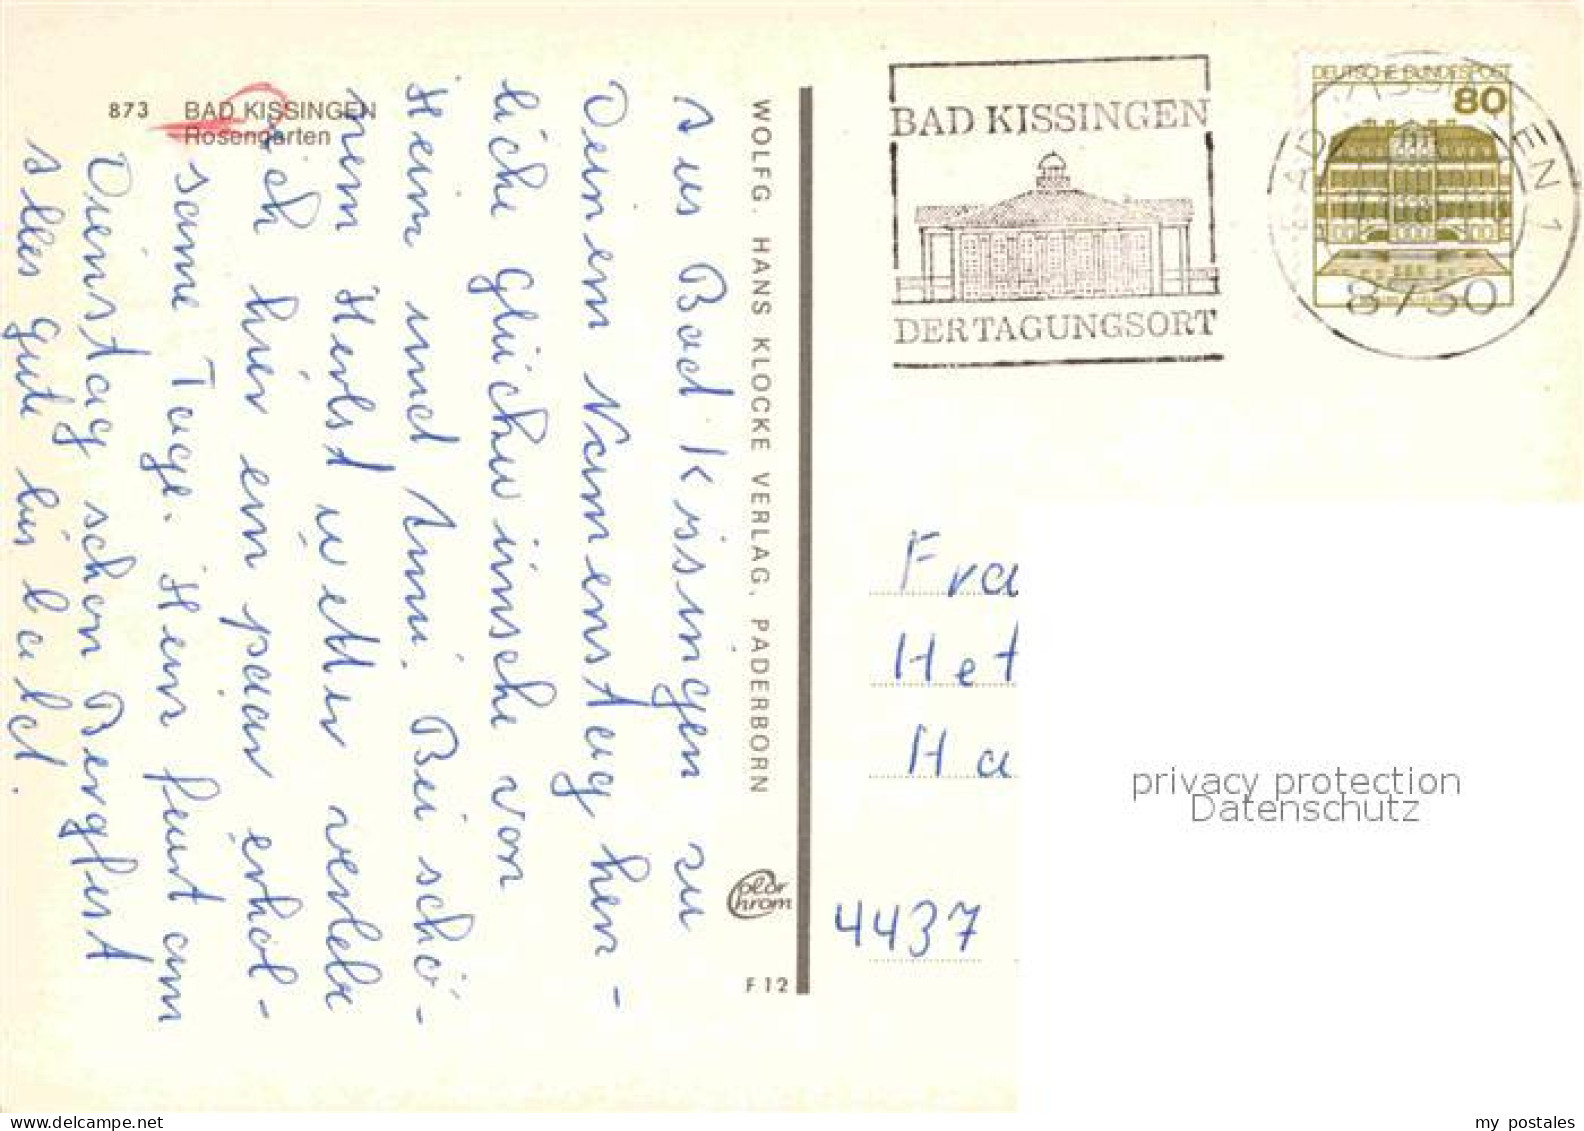 873 BAD KISSINGEN
Rosengarten
Aus Bad Kissingen zu
Deinem Namenstag herz-
liche Glückwünsche von
Hein und Anni. Bei schö-
nem Herbstwetter verlebe
ich hier ein paar erhol-
same Tage. Hein feiert am
Dienstag schon Bergfest
Alles gute bis bald.
WOLFG. HANS KLOCKE VERLAG, PADERBORN
Color
Chrom
F 12
BAD KISSINGEN
DER TAGUNGSORT
DEUTSCHE BUNDESPOST
80
BAD KISSINGEN 1
8730
Fra
Het
Ha
4437
privacy protection
Datenschutz
my postales